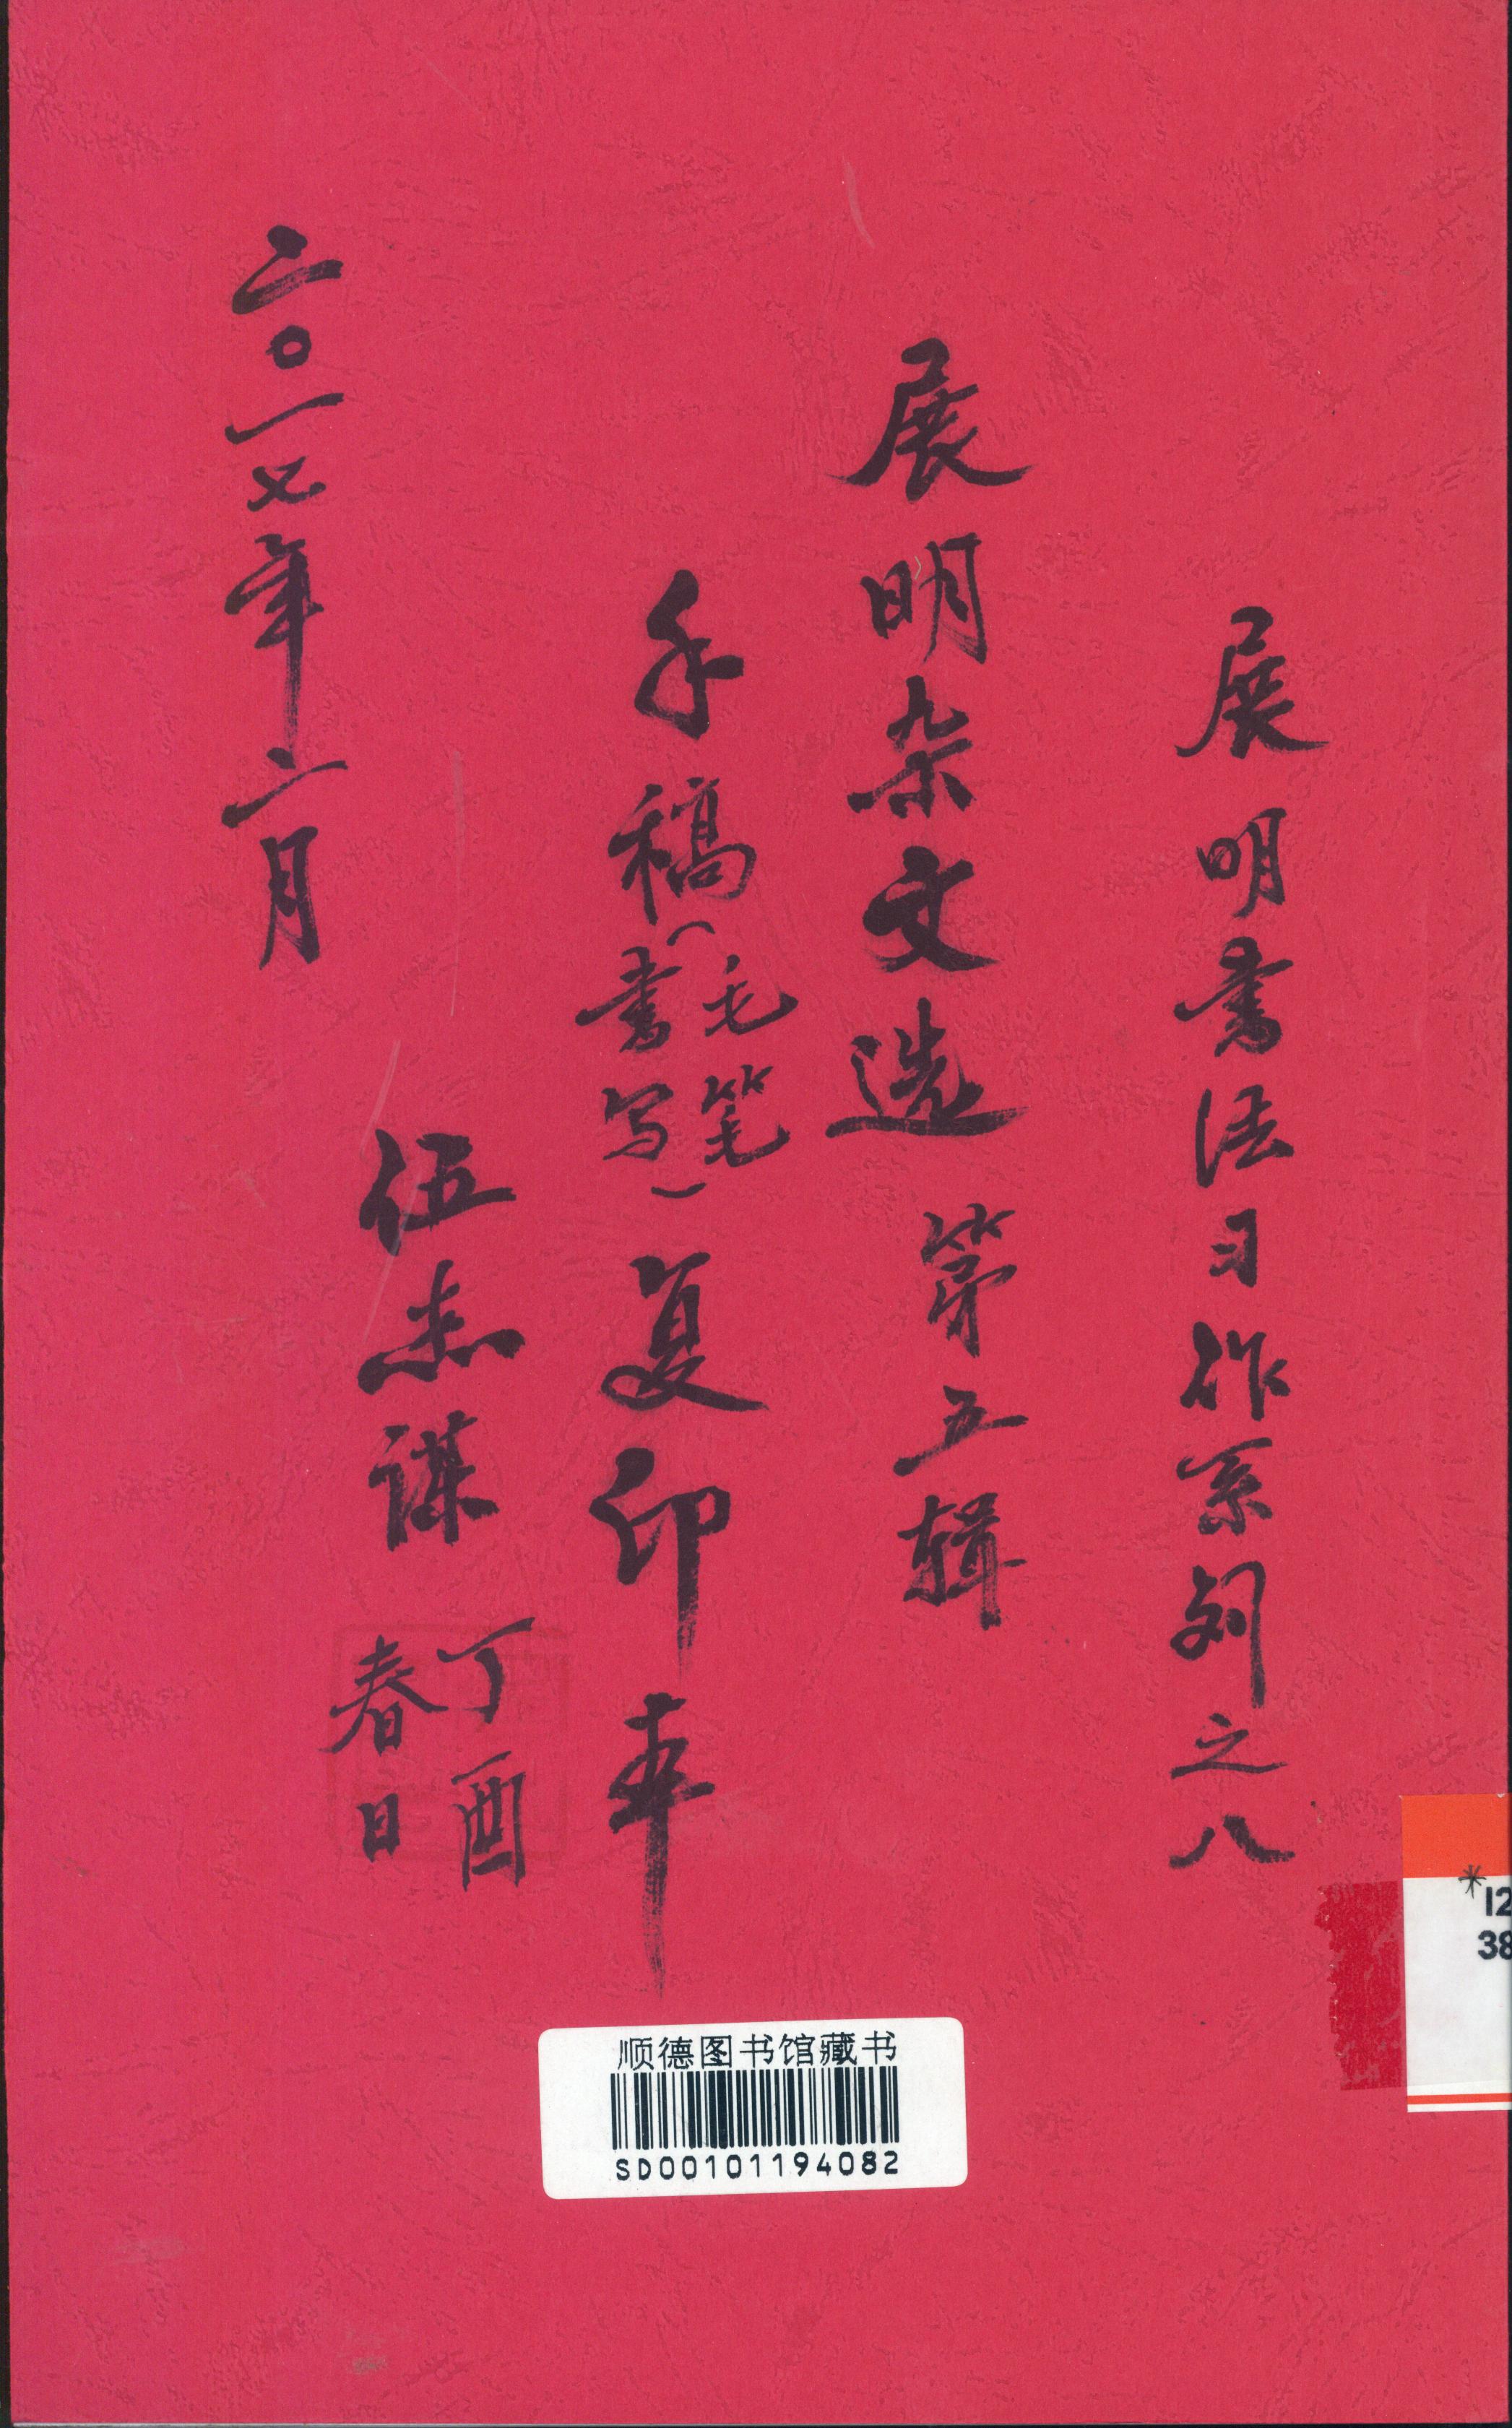 展明书法习作系列之八
展明杂文选 第五辑
手稿(毛笔书写)复印本
伍杰谋 丁酉春日
二〇一七年二月
*I2
38
顺德图书馆藏书
SD00101194082